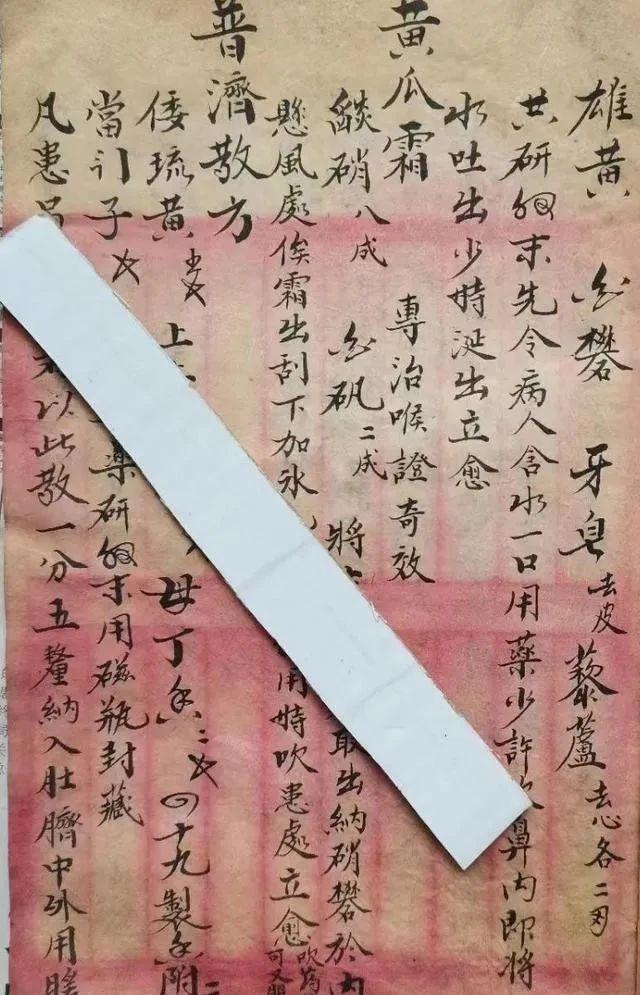 雄黃 白礬 牙皂去皮 藜蘆去心各二
共研細末先令病人含水一口用藥少許 鼻內即將
水吐出少時涎出立愈
黃瓜霜 專治喉證奇效
燄硝八成 白矾二成 將 取出納硝礬於內
懸風處俟霜出刮下加冰 用時吹患處立愈
普濟散方
倭琉黃 上 母丁香二 四十九製香附
當门子 藥研細末用磁瓶封藏
凡患 以此散一分五釐納入肚臍中外用